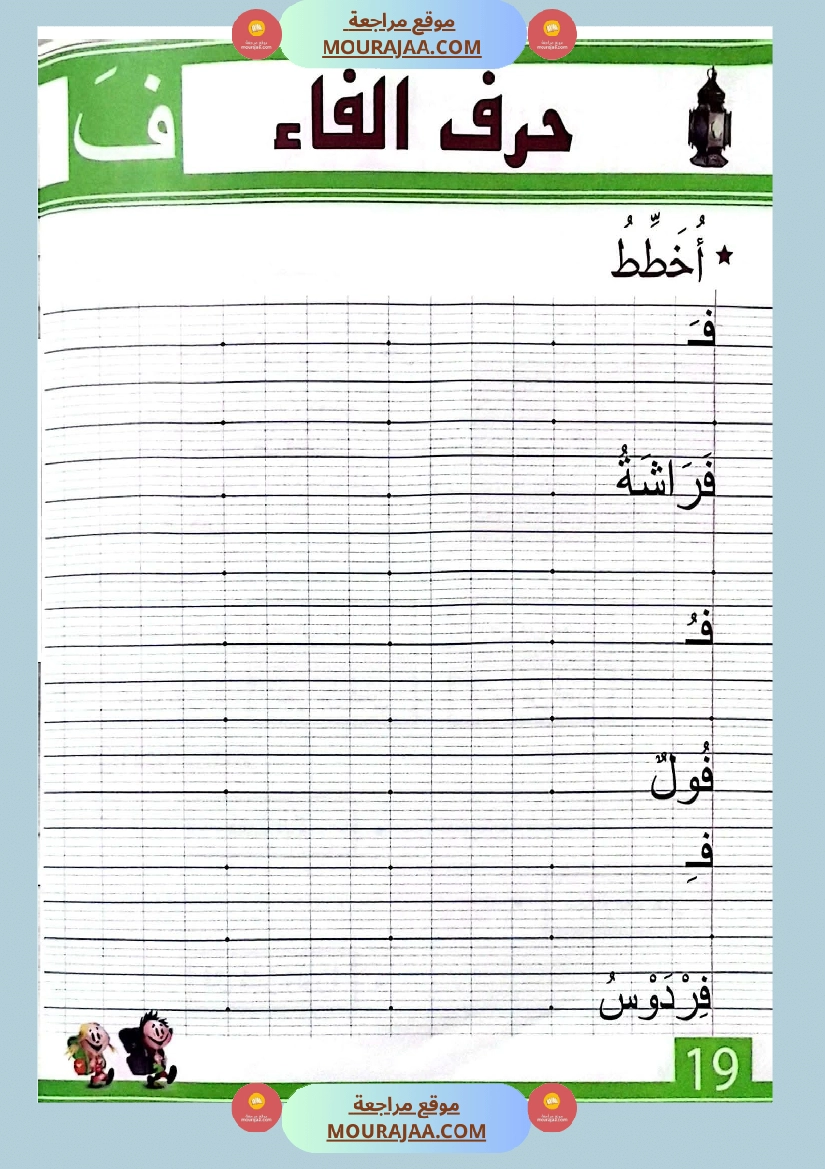 موقع مراجعة
MOURAJAA.COM
حرف الفاء
فَ
أُخَطِّطُ
فَـ
فَرَاشَةٌ
فُـ
فُولٌ
فِـ
فِرْدَوْسُ
19
موقع مراجعة
MOURAJAA.COM